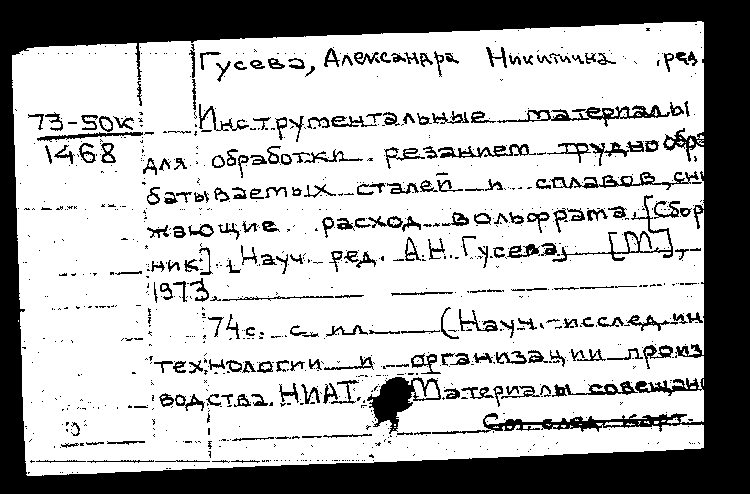 Гусева, Александра Никитична ред.
73-50к
1468
Инструментальные материалы
для обработки резанием труднообра
батываемых сталей и сплавов, сни
жающие расход вольфрама. [Сбор
ник]. Науч. ред. А.Н. Гусева, [М.],
1973.
74с. с ил. (Науч.-исслед. ин
технологии и организации произ
водства. НИАТ. Материалы совещан
См. след. карт.